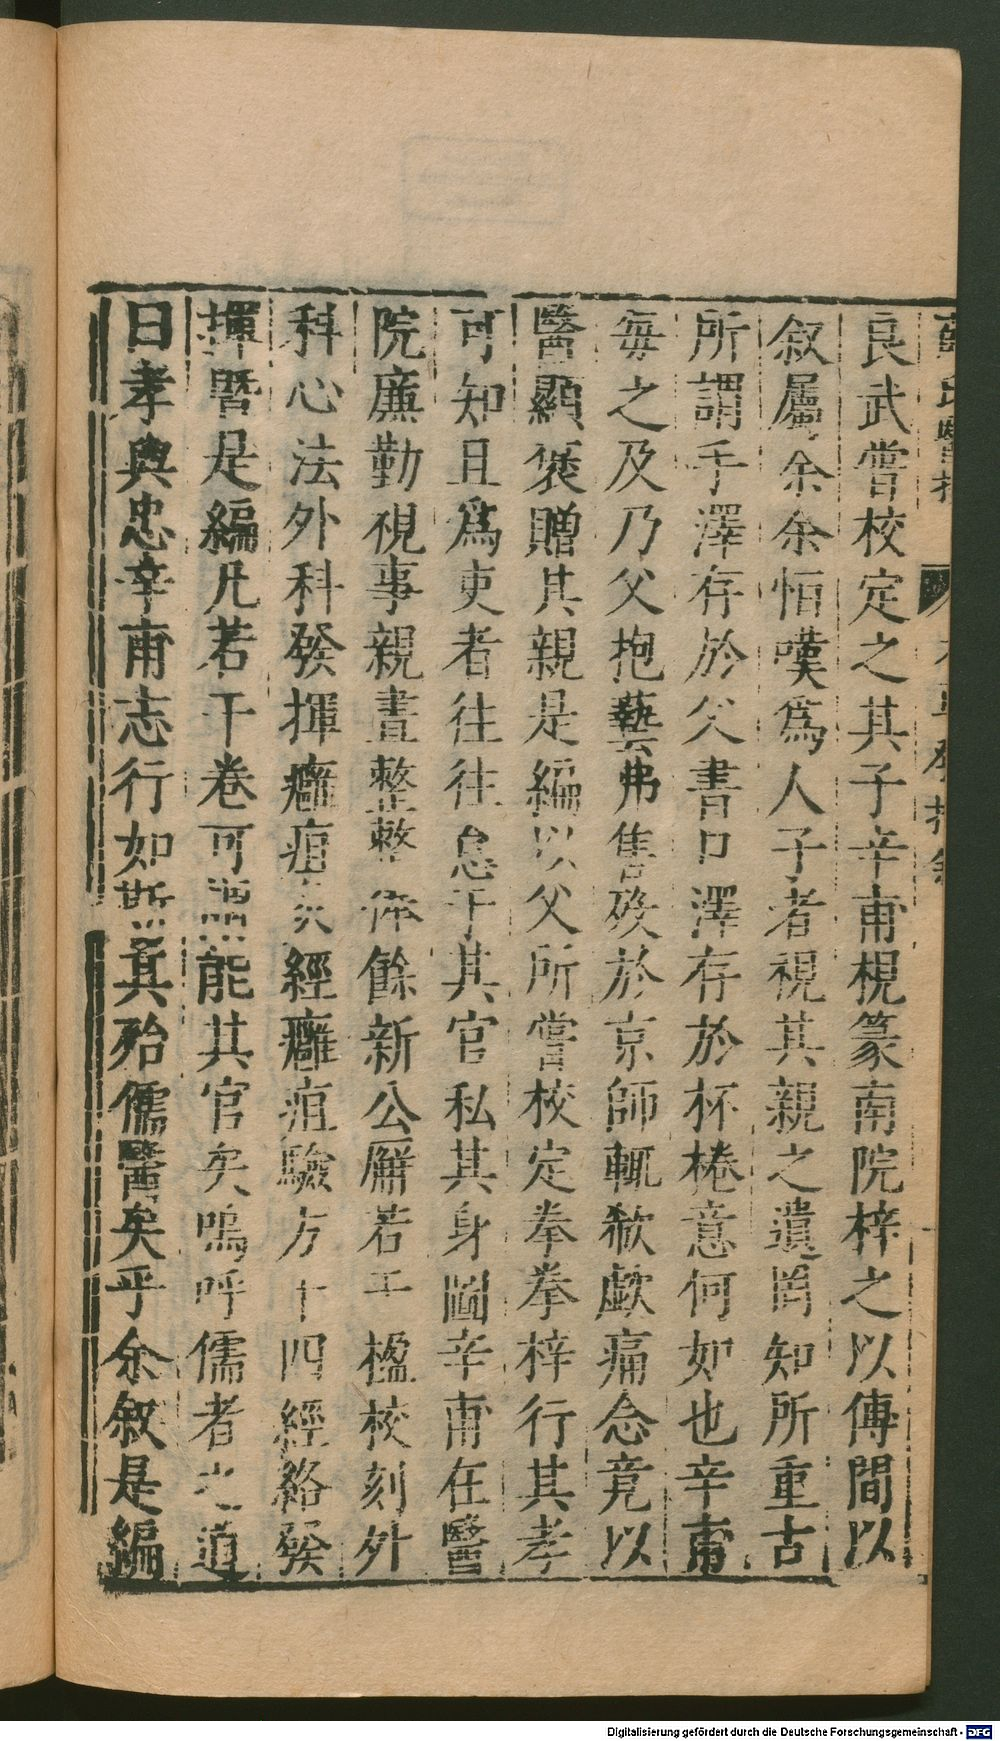 良武嘗校定之其子辛甫梘篆南院梓之以傳間以
叙屬余余恒嘆爲人子者視其親之遺罔知所重古
所謂手澤存於父書口澤存於杯棬意何如也辛甫
每之及乃父抱藝弗售歿於京師輒欷歔痛念竟以
醫顯褒贈其親是編以父所嘗校定拳拳梓行其孝
可知且爲吏者往往怠于其官私其身圖辛甫在醫
院廉勤視事親晝整整俸餘新公廨若干楹校刻外
科心法外科發揮癰疽經癰疽驗方十四經絡發
揮暨是編凡若干卷可謂能其官矣嗚呼儒者之道
曰孝與忠辛甫志行如斯其殆儒醫矣乎余叙是編
薛氏醫